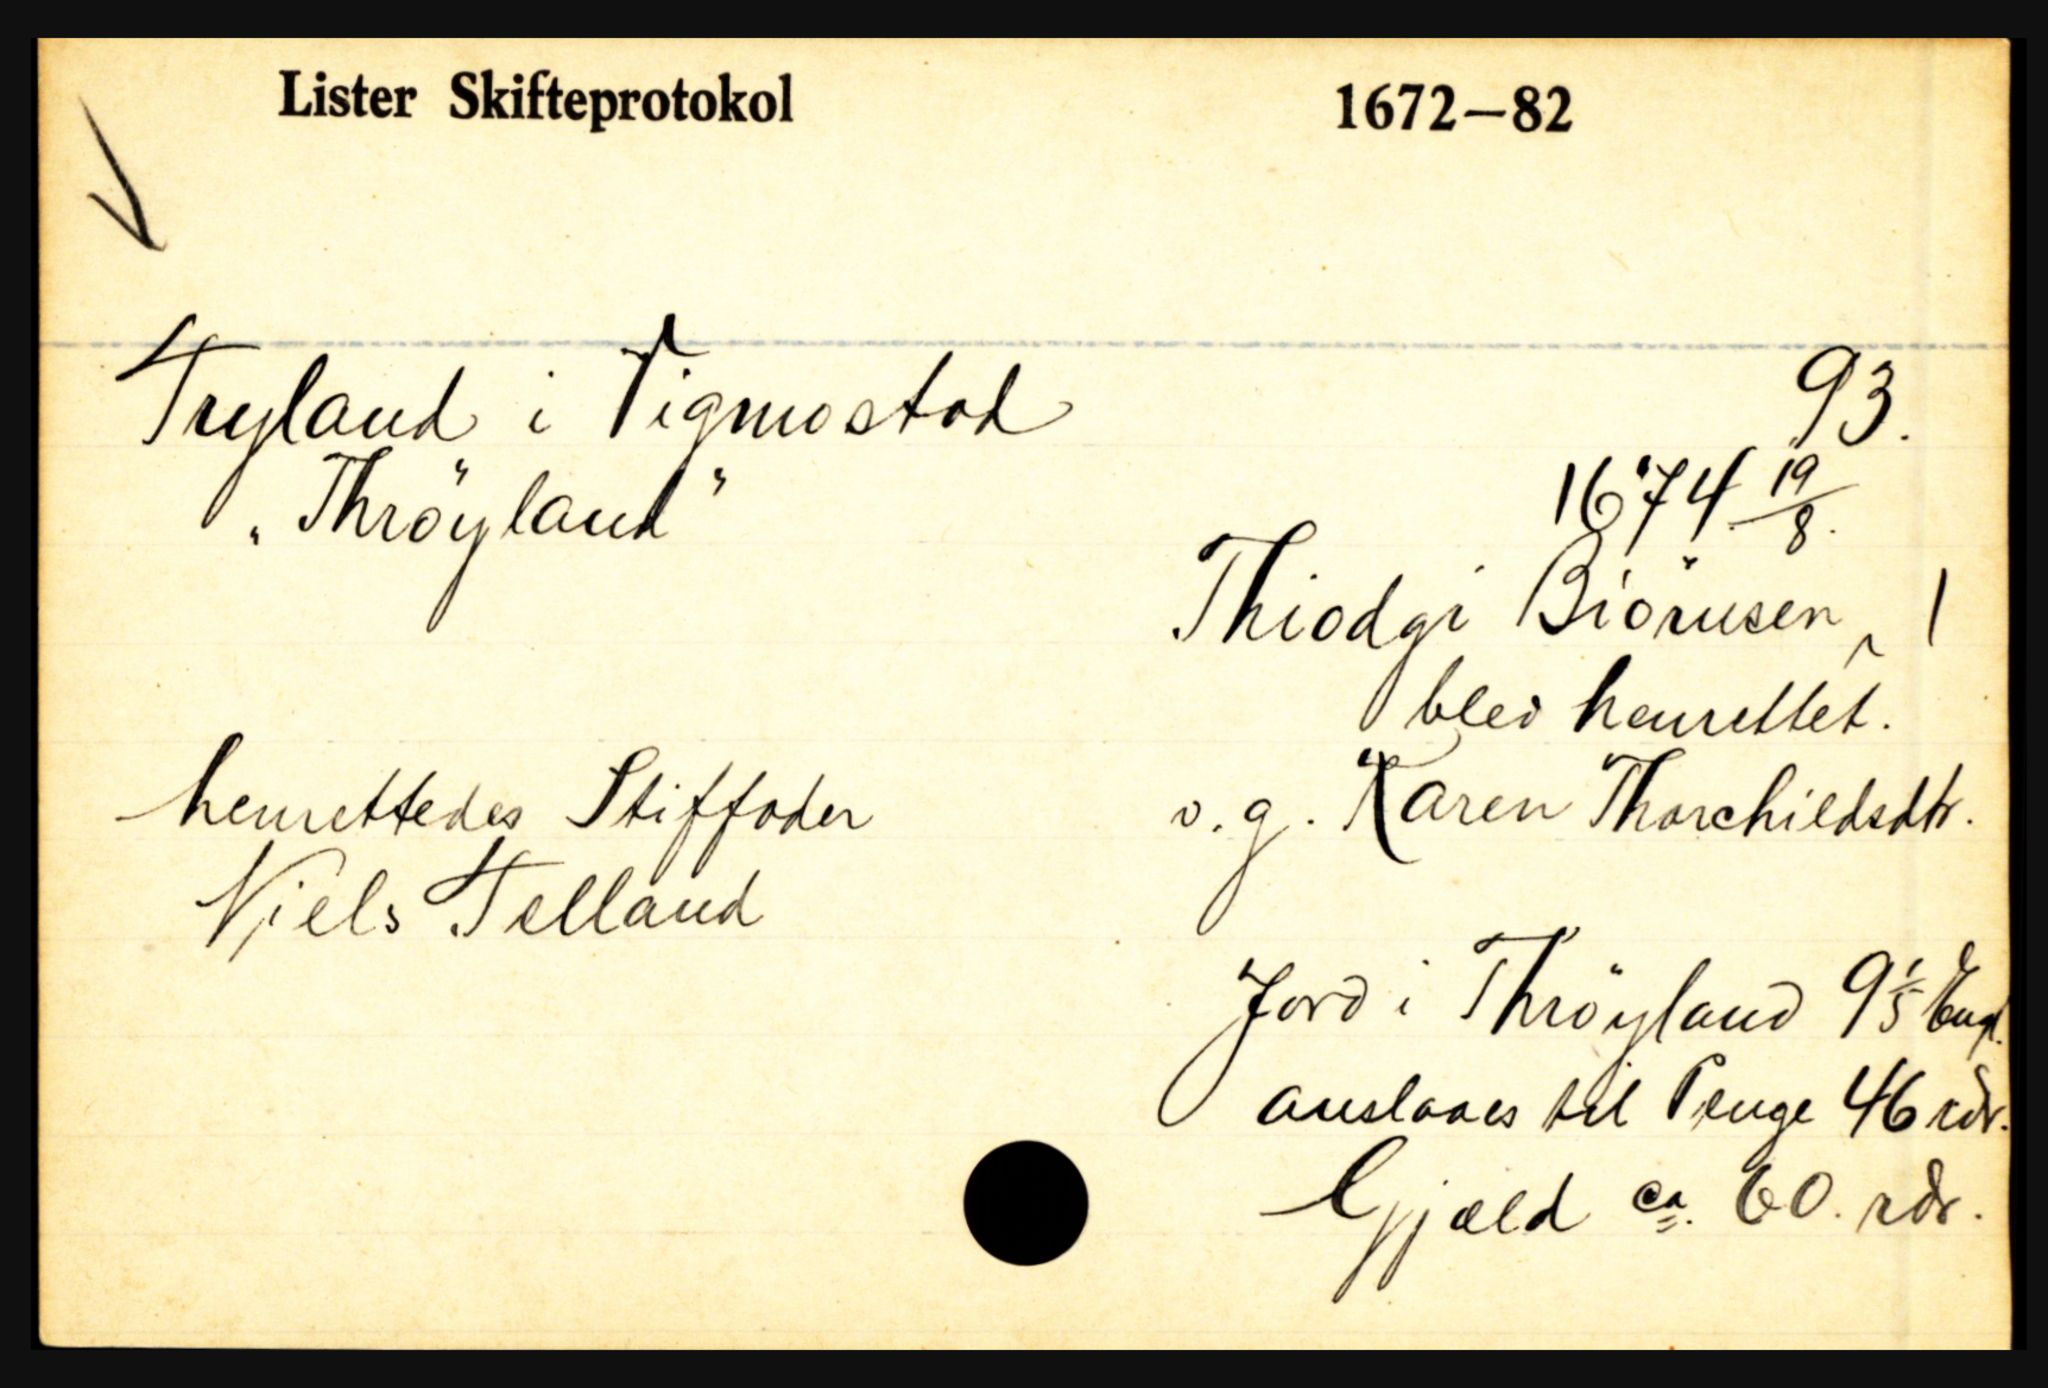 Lister Skifteprotokol 1672–82
Tryland i Vigmostad
93.
"Thröyland"
1674 19/8.
Thiodgi Biörnsen, 1
blev henrettet.
henrettedes Stiffader
v. g. Karen Thorchildsdtr.
Niels Telland
Jord i Thröyland 9 1/5 Engl.
anslaaes til Penge 46 rdr.
Gjæld ca. 60. rdr.